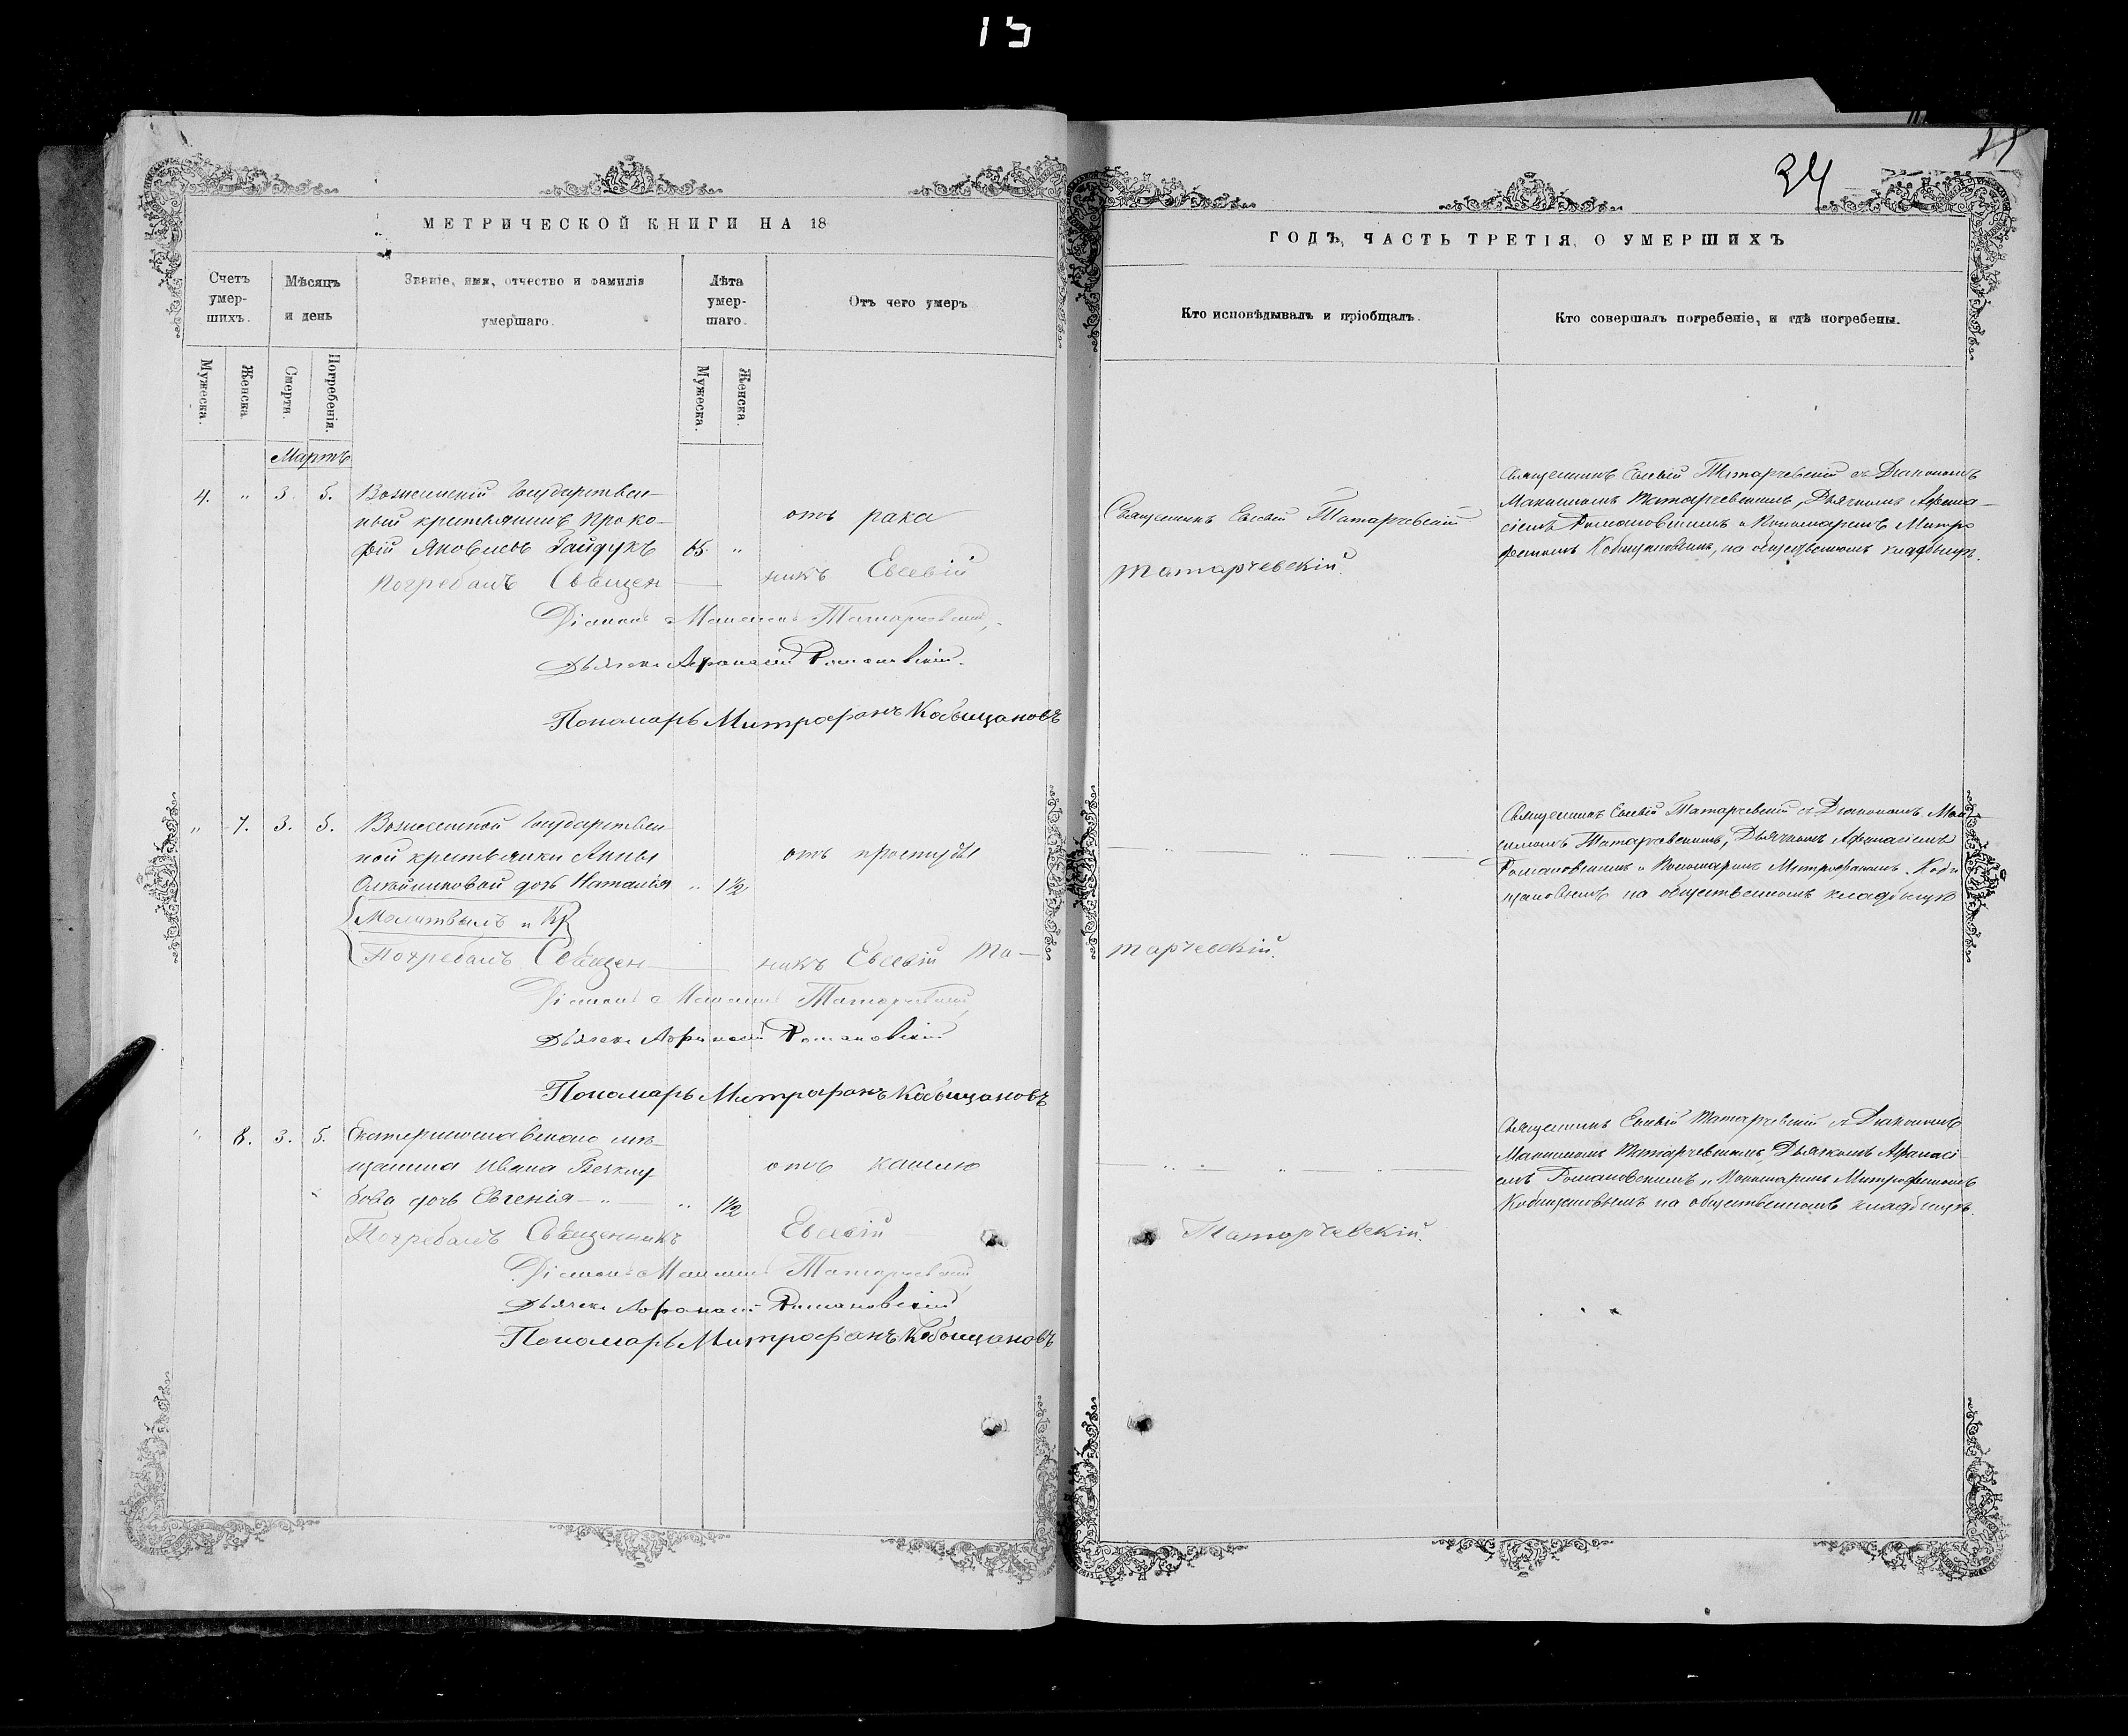 15
МЕТРИЧЕСКОЙ КНИГИ НА 18
Счетъ умершихъ.
Мѣсяцъ и день
Званіе, имя, отчество и фамилія умершаго.
Лѣта умершаго.
Отъ чего умеръ
Мужеска.
Женска.
Смерти.
Погребенія.
Мужеска.
Женска.
Мартъ
4. " 3. 5. Вознесенскій государствен-
ный крестьянинъ Проко-
фій Яковлевъ Гайдукъ 65. " отъ рака
Погребалъ Священникъ Евсевій
Діаконъ Максимъ Татарчевскій,
Дьячекъ Афанасій Романовскій.
Пономарь Митрофанъ Кобыщановъ
" 7. 3. 5. Вознесенской государствен-
ной крестьянки Анны
Олейниковой дочь Наталія " 1½ отъ простуды
Молитвылъ и Кр
Погребалъ Священникъ Евсевій Та-
Діаконъ Максимъ Татарчевскій,
Дьячекъ Афанасій Романовскій
Пономарь Митрофанъ Кобыщановъ
" 8. 3. 5. Екатеринославскаго мѣ-
щанина Ивана
дочь Евгенія " " 1½ отъ кашлю
Погребалъ Священникъ Евсевій
Діаконъ Максимъ Татарчевскій,
Дьячекъ Афанасій Романовскій
Пономарь Митрофанъ Кобыщановъ
34
ГОДЪ, ЧАСТЬ ТРЕТІЯ, О УМЕРШИХЪ
Кто исповѣдывалъ и пріобщалъ.
Кто совершалъ погребеніе, и гдѣ погребены.
Священникъ Евсевій Татарчевскій
Татарчевскій.
Священникъ Евсевій Татарчевскій съ Діакономъ
Максимомъ Татарчевскимъ, Дьячкомъ Афана-
сіемъ Романовскимъ и Пономаремъ Митро
фаномъ Кобыщановымъ, на общественномъ кладбищѣ.
Священникъ Евсевій Татарчевскій съ Діакономъ Мак
симомъ Татарчевскимъ, Дьячкомъ Афанасіемъ
Романовскимъ и Пономаремъ Митрофаномъ Кобы
щановымъ на общественномъ кладбищѣ
тарчевскій.
Священникъ Евсевій Татарчевскій съ Діакономъ
Максимомъ Татарчевскимъ, Дьячкомъ Афанасі
емъ Романовскимъ и Пономаремъ Митрофаномъ
Кобыщановымъ на общественномъ кладбищѣ.
Татарчевскій.